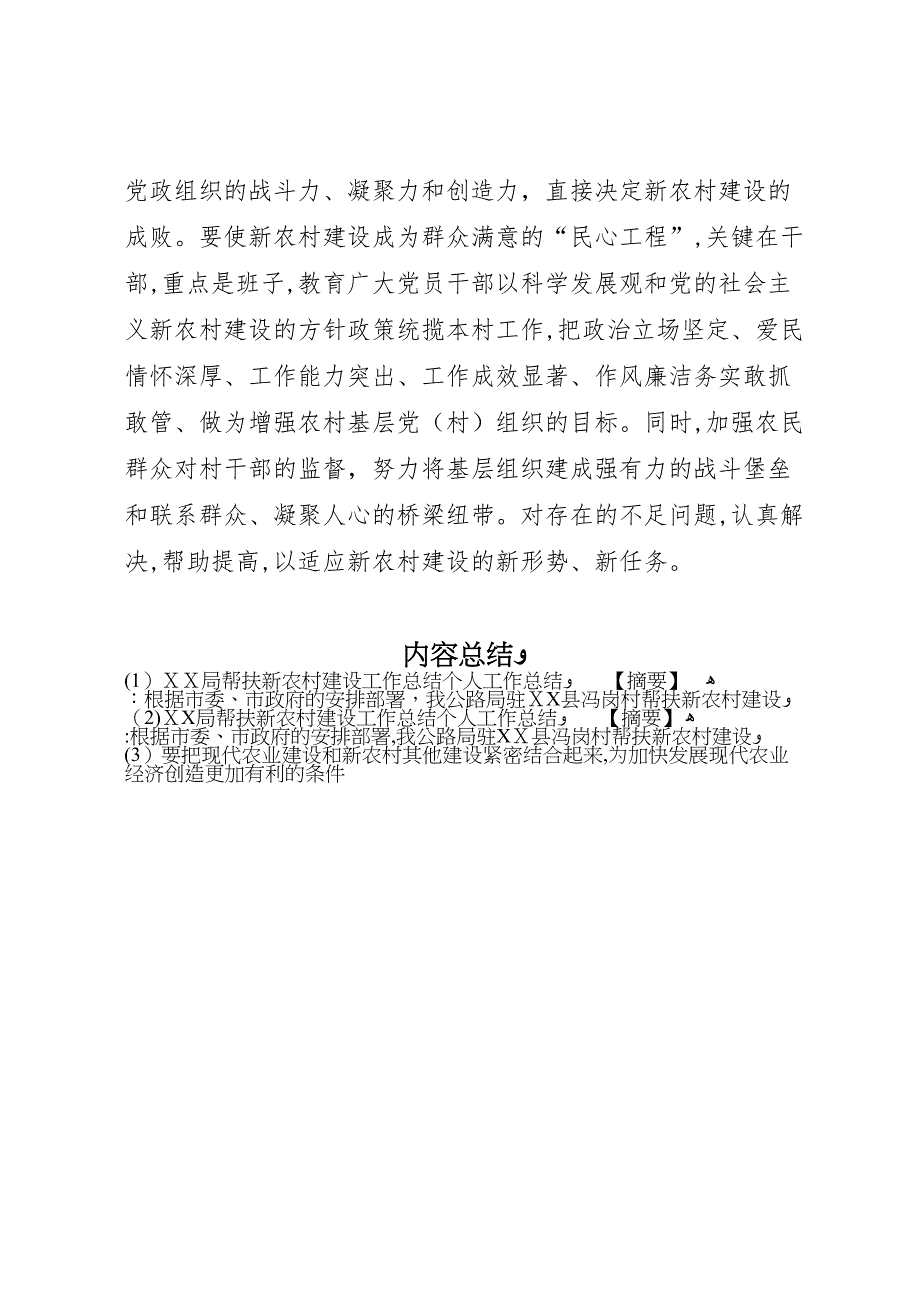 党政组织的战斗力、凝聚力和创造力，直接决定新农村建设的
成败。要使新农村建设成为群众满意的“民心工程”,关键在干
部,重点是班子,教育广大党员干部以科学发展观和党的社会主
义新农村建设的方针政策统揽本村工作,把政治立场坚定、爱民
情怀深厚、工作能力突出、工作成效显著、作风廉洁务实敢抓
敢管、做为增强农村基层党（村）组织的目标。同时,加强农民
群众对村干部的监督，努力将基层组织建成强有力的战斗堡垒
和联系群众、凝聚人心的桥梁纽带。对存在的不足问题,认真解
决,帮助提高,以适应新农村建设的新形势、新任务。
内容总结ﻭ
(1）ＸＸ局帮扶新农村建设工作总结个人工作总结ﻭ　　【摘要】　ﻫ
：根据市委、市政府的安排部署，我公路局驻ＸX县冯岗村帮扶新农村建设ﻭ
（2)ＸX局帮扶新农村建设工作总结个人工作总结ﻭ　　【摘要】ﻫ
:根据市委、市政府的安排部署,我公路局驻XＸ县冯岗村帮扶新农村建设ﻭ
(3）要把现代农业建设和新农村其他建设紧密结合起来,为加快发展现代农业
经济创造更加有利的条件